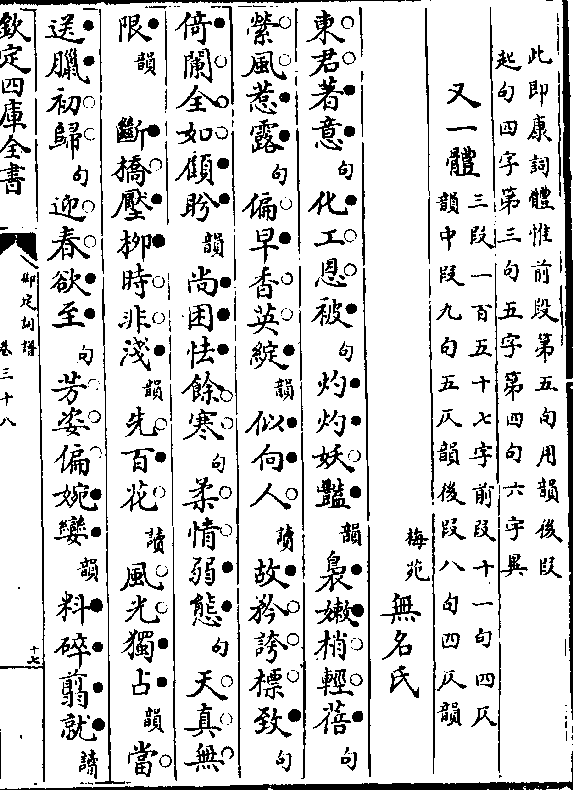 此即康詞體惟前段第五句用韻後段
起句四字第三句五字第四句六字異
又一體 三段一百五十七字前段十一句四仄
韻中段九句五仄韻後段八句四仄韻
梅苑 無名氏
東君著意句化工恩被句灼灼妖豔韻裊嫩梢輕蓓句
縈風惹露句偏早香英綻韻似向人讀故矜誇標致句
倚闌全如顧盻韻尚困怯餘寒句柔情弱態句天真無
限韻 斷橋壓柳時非淺韻先百花讀風光獨占韻當
送臘初歸句迎春欲至句芳姿偏婉孌韻料碎翦就讀
欽定四庫全書
御定詞譜
卷三十八
十七